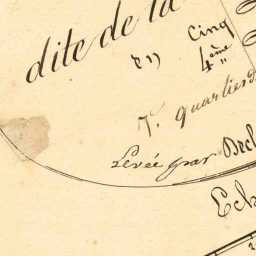 dite de la
en Cinq
4ème
7. quartiers
Levée par Bech
Ech